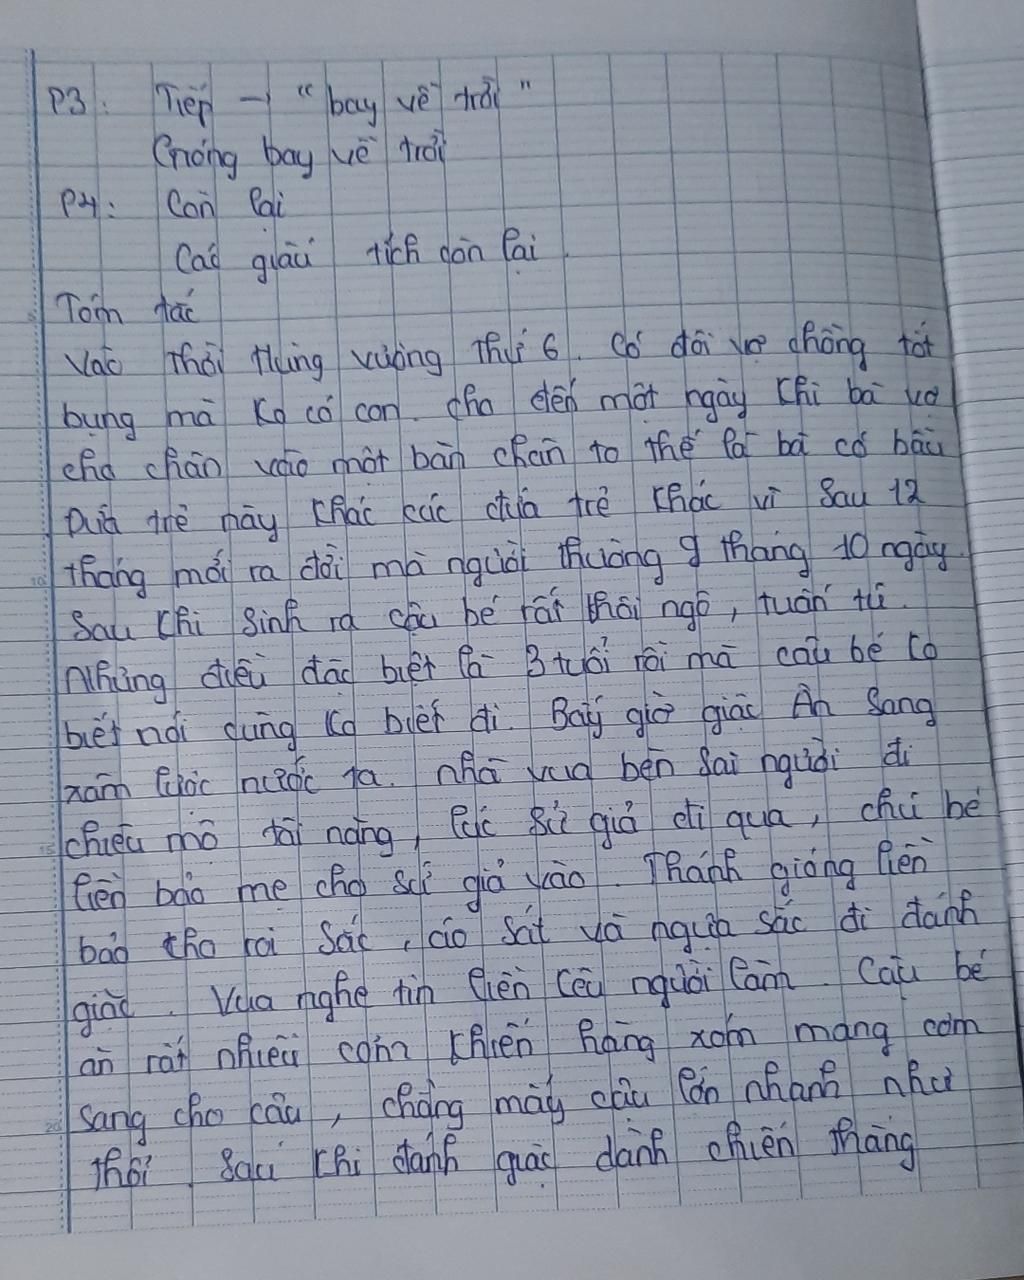 P3: Tiếp → "bay về trời"
Gióng bay về trời
P4: Còn lại
Các giấu tích còn lại
Tóm tắt
Vào thời Hùng vương thứ 6. Có đôi vợ chồng tốt
bụng mà ko có con. cho đến một ngày khi bà vợ
cho chân vào một bàn chân to thế là bà có bầu
Đứa trẻ này khác các đứa trẻ khác vì sau 12
tháng mới ra đời mà người thường 9 tháng 10 ngày.
Sau khi sinh ra cậu bé rất khôi ngô, tuấn tú.
Nhưng điều đặc biệt là 3 tuổi rồi mà cậu bé ko
biết nói cũng ko biết đi. Bấy giờ giặc Ân sang
xâm lược nước ta. nhà vua bèn sai người đi
chiêu mộ tài năng, lúc sứ giả đi qua, chú bé
liền bảo mẹ cho sứ giả vào. Thánh gióng liền
bảo cho roi sắc, áo sắt và ngựa sắc đi đánh
giặc. Vua nghe tin liền kêu người làm. Cậu bé
ăn rất nhiều cơm khiến hàng xóm mang cơm
sang cho cậu, chẳng mấy cậu lớn nhanh như
thổi. Sau khi đánh giặc dành chiến thắng